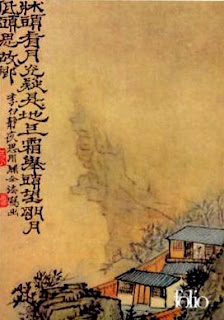 牀頭看月光疑是地上霜舉頭望明月
低頭思故鄉
李白靜夜思用關仝
folio